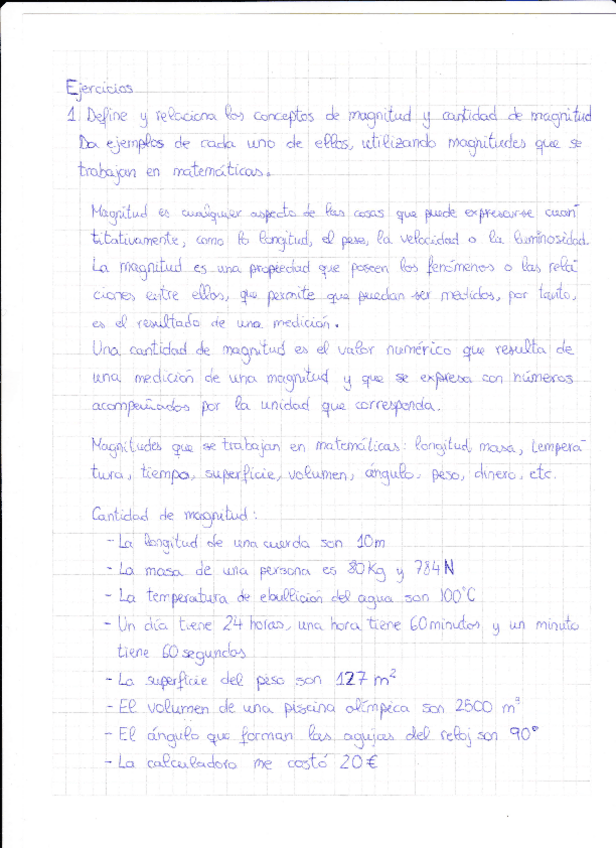 Ejercicios
1. Define y relaciona los conceptos de magnitud y cantidad de magnitud
Da ejemplos de cada uno de ellos, utilizando magnitudes que se
trabajan en matemáticas.
Magnitud es cualquier aspecto de las cosas que puede expresarse cuan-
titativamente, como la longitud, el peso, la velocidad o la luminosidad.
La magnitud es una propiedad que poseen los fenómenos o las rela-
ciones entre ellos, que permite que puedan ser medidos, por tanto,
es el resultado de una medición.
Una cantidad de magnitud es el valor numérico que resulta de
una medición de una magnitud y que se expresa con números
acompañados por la unidad que corresponda.
Magnitudes que se trabajan en matemáticas: longitud, masa, tempera-
tura, tiempo, superficie, volumen, ángulo, peso, dinero, etc.
Cantidad de magnitud:
- La longitud de una cuerda son 10m
- La masa de una persona es 80Kg y 784N
- La temperatura de ebullición del agua son 100°C
- Un día tiene 24 horas, una hora tiene 60 minutos y un minuto
tiene 60 segundos
- La superficie del piso son 127 m²
- El volumen de una piscina olímpica son 2500 m³
- El ángulo que forman las agujas del reloj son 90°
- La calculadora me costó 20€